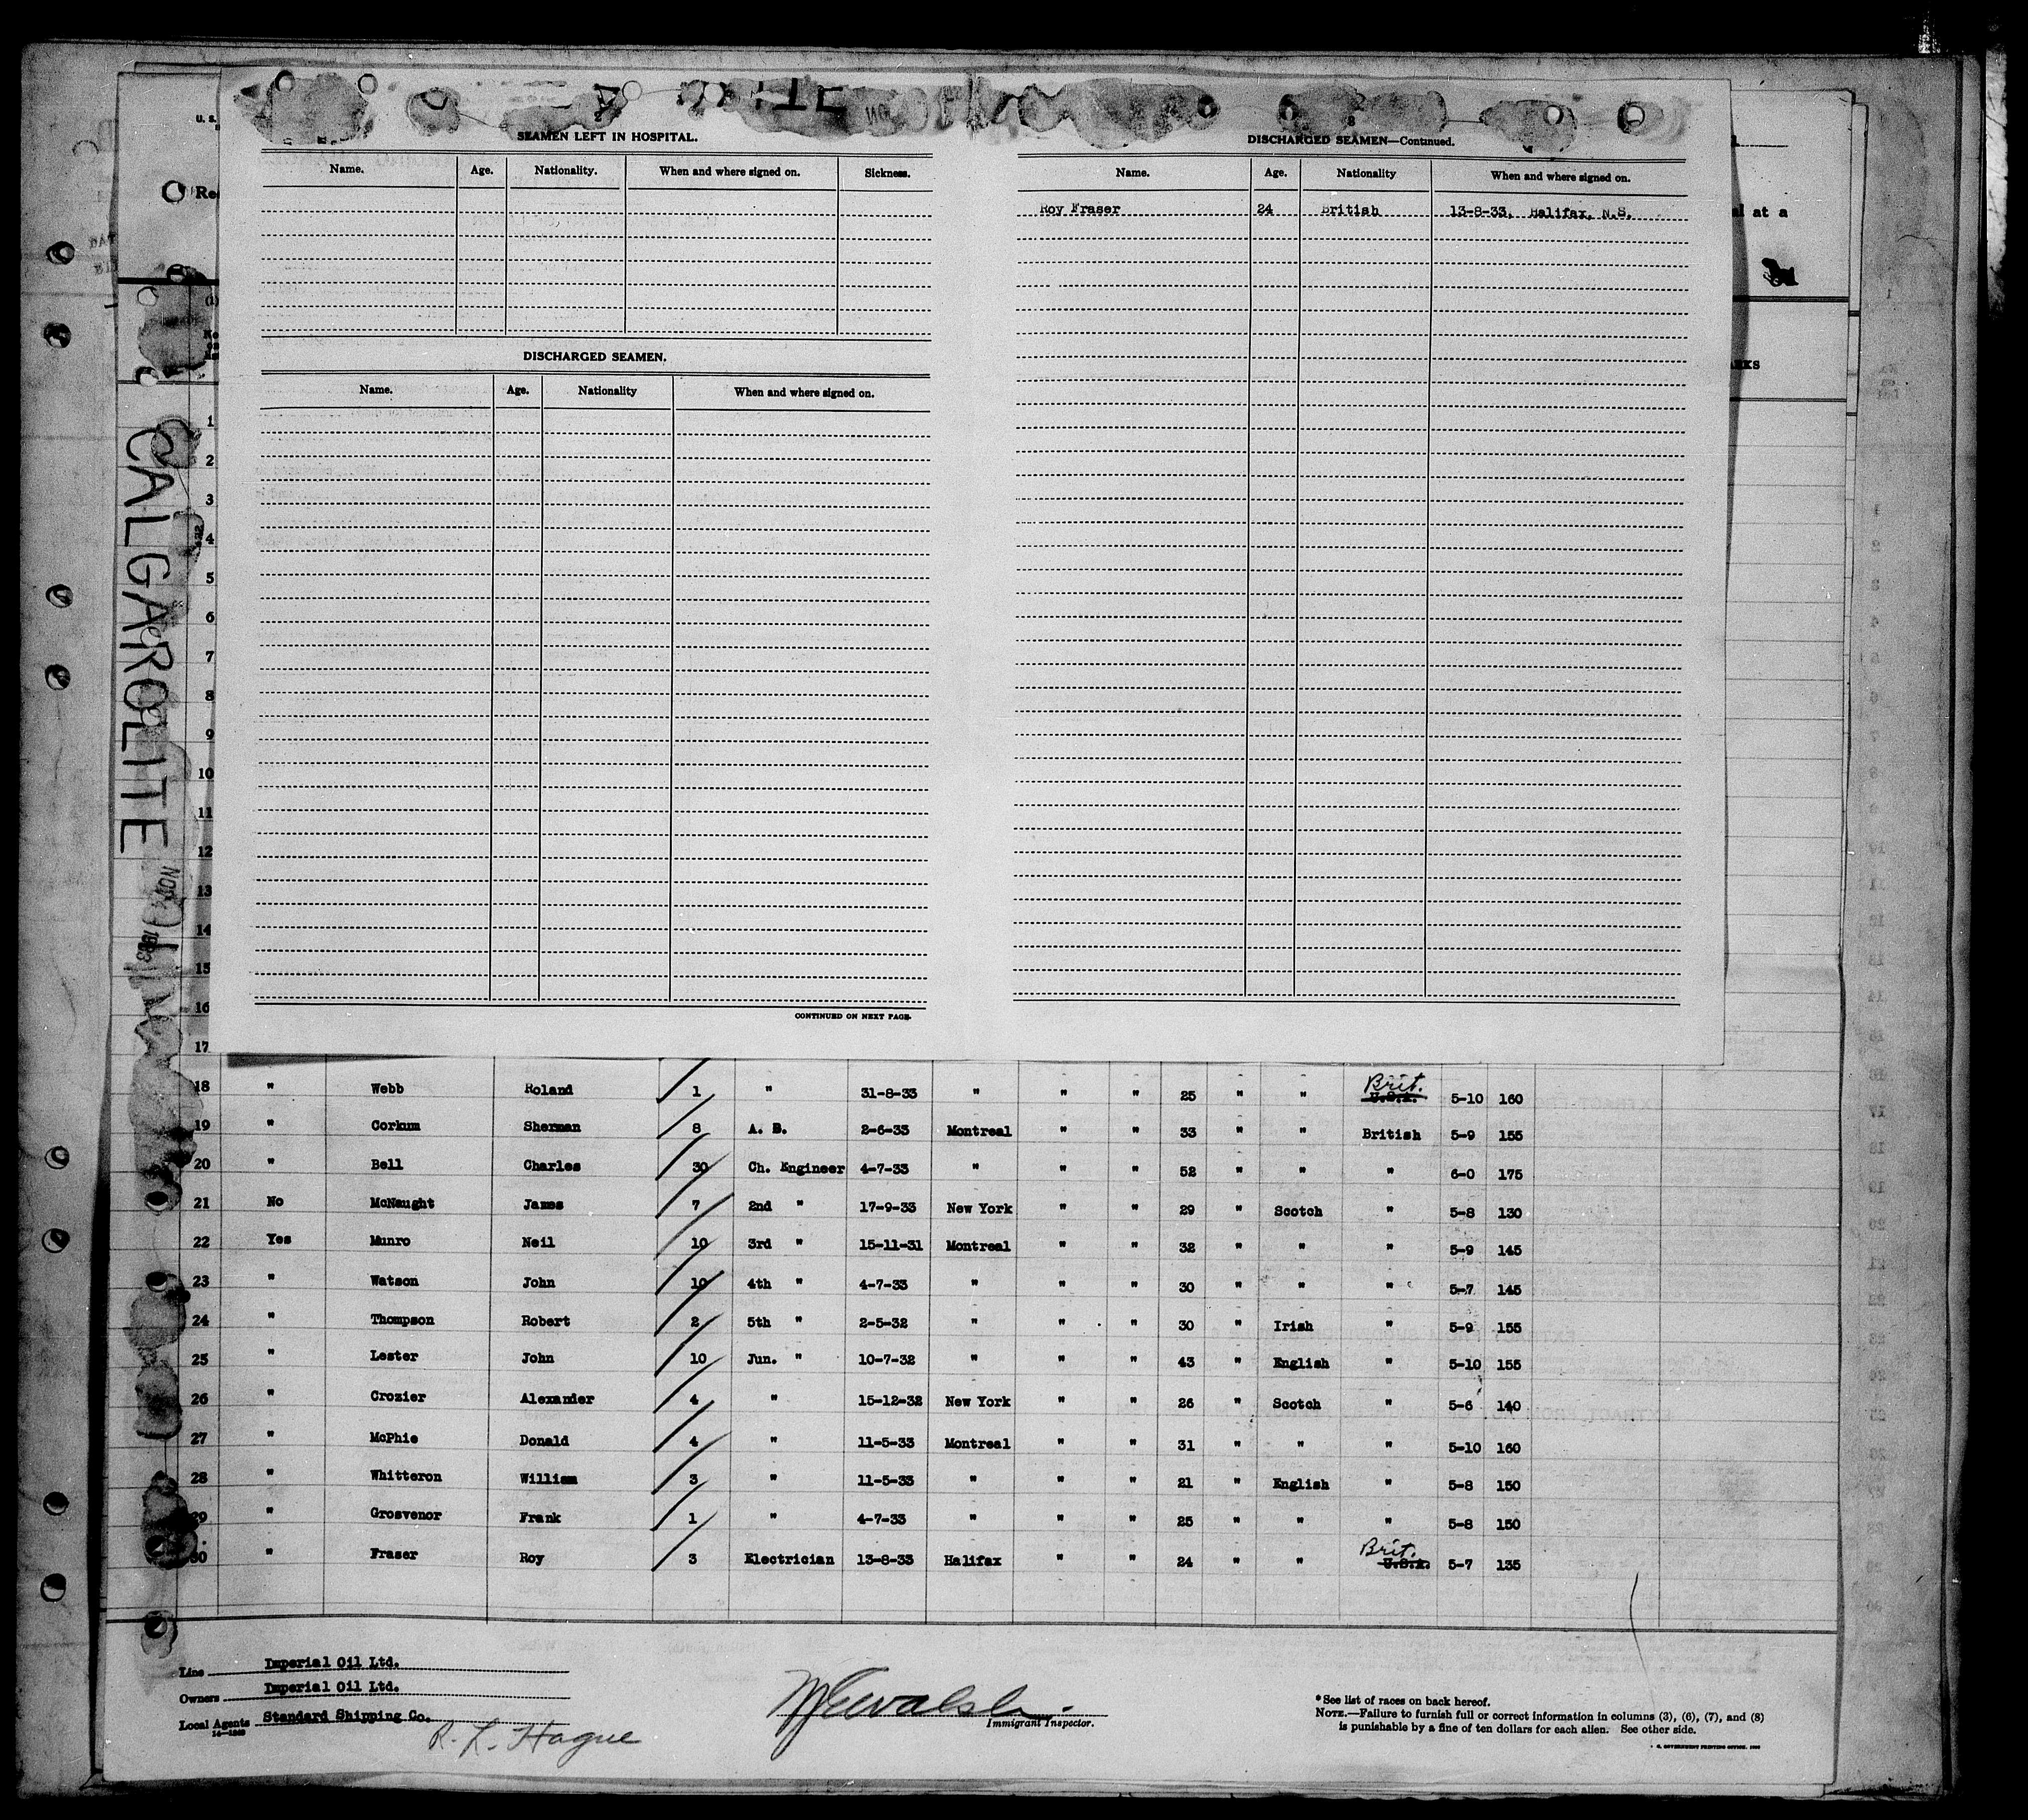 U. S.
SEAMEN LEFT IN HOSPITAL.
Name. Age. Nationality. When and where signed on. Sickness.
DISCHARGED SEAMEN.
Name. Age. Nationality When and where signed on.
CONTINUED ON NEXT PAGE.
8
DISCHARGED SEAMEN—Continued.
Name. Age. Nationality When and where signed on.
Roy Fraser 24 British 13-8-33, Halifax, N.S.
al at a
CALGAROLITE
1
2
3
4
5
6
7
8
9
10
11
12
13
14
15
16
17
18 " Webb Roland 1 " 31-8-33 " " " 25 " " Brit. U.S.A. 5-10 160
19 " Corkum Sherman 8 A. B. 2-6-33 Montreal " " 33 " " British 5-9 155
20 " Bell Charles 30 Ch. Engineer 4-7-33 " " " 52 " " " 6-0 175
21 No McNaught James 7 2nd " 17-9-33 New York " " 29 " Scotch " 5-8 130
22 Yes Munro Neil 10 3rd " 15-11-31 Montreal " " 32 " " " 5-9 145
23 " Watson John 10 4th " 4-7-33 " " " 30 " " " 5-7 145
24 " Thompson Robert 2 5th " 2-5-32 " " " 30 " Irish " 5-9 155
25 " Lester John 10 Jun. " 10-7-32 " " " 43 " English " 5-10 155
26 " Crozier Alexander 4 " 15-12-32 New York " " 26 " Scotch " 5-6 140
27 " McPhie Donald 4 " 11-5-33 Montreal " " 31 " " " 5-10 160
28 " Whitteron William 3 " 11-5-33 " " " 21 " English " 5-8 150
29 " Grosvenor Frank 1 " 4-7-33 " " " 25 " " " 5-8 150
30 " Fraser Roy 3 Electrician 13-8-33 Halifax " " 24 " " Brit. U.S.A. 5-7 135
Line Imperial Oil Ltd.
Owners Imperial Oil Ltd.
Local Agents Standard Shipping Co.
R. L. Hague
Immigrant Inspector.
* See list of races on back hereof.
NOTE.—Failure to furnish full or correct information in columns (3), (6), (7), and (8)
is punishable by a fine of ten dollars for each alien. See other side.